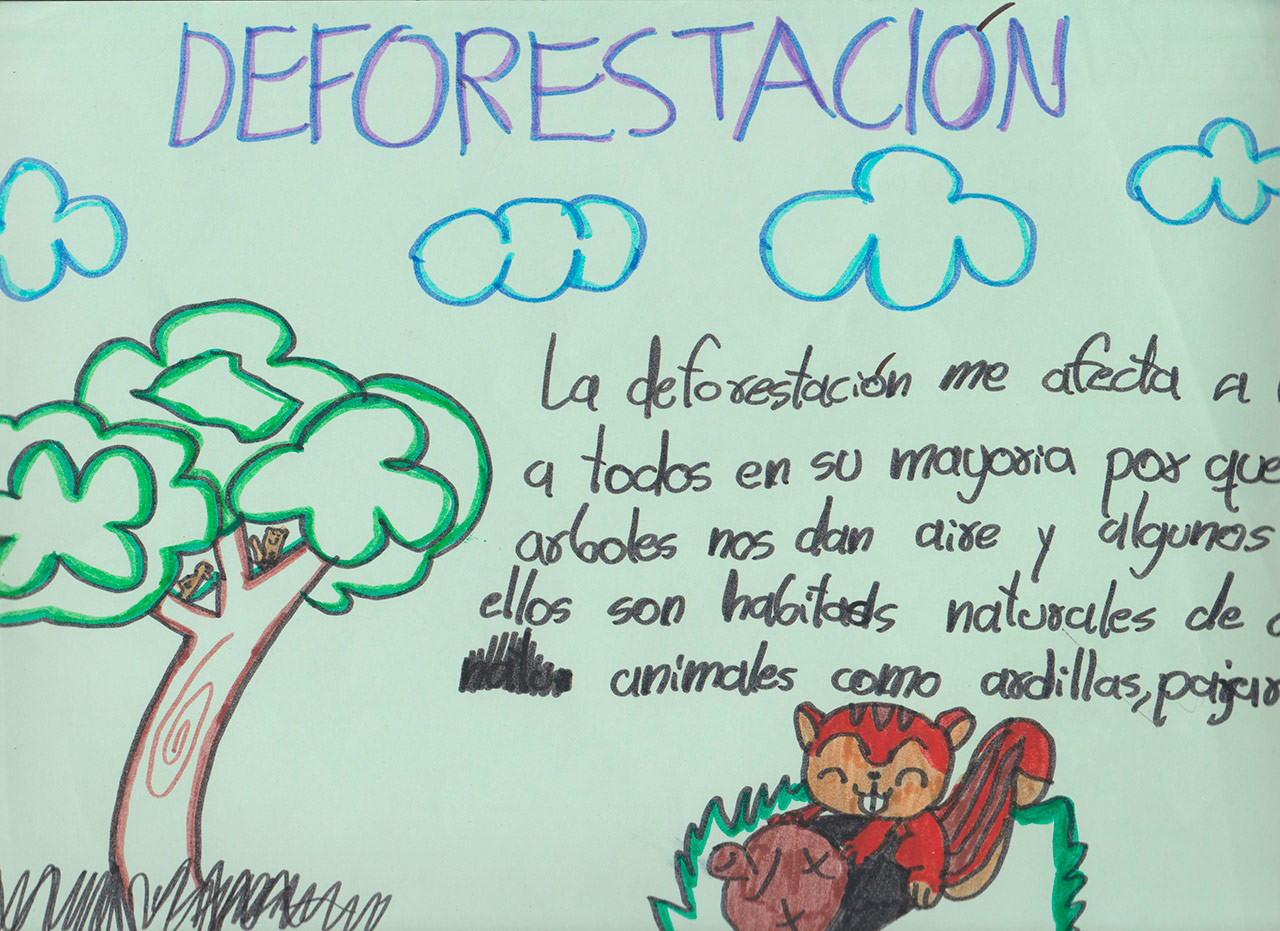 DEFORESTACIÓN
La deforestación me afecta a
a todos en su mayoria por que
arboles nos dan aire y algunos
ellos son habitads naturales de
animales como ardillas,